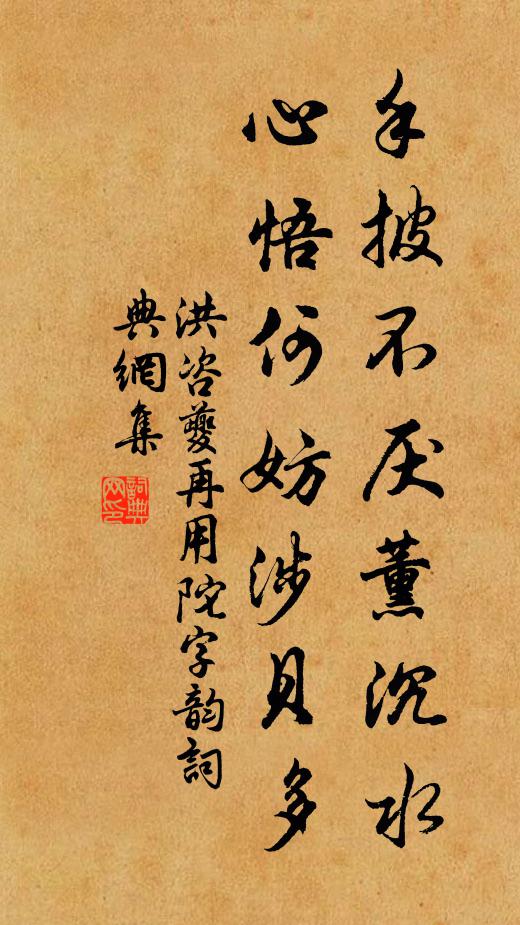 手披不厌薰沉水
心悟何妨涉贝多
洪咨夔再用陀字韵词
典網集
詞典
网印